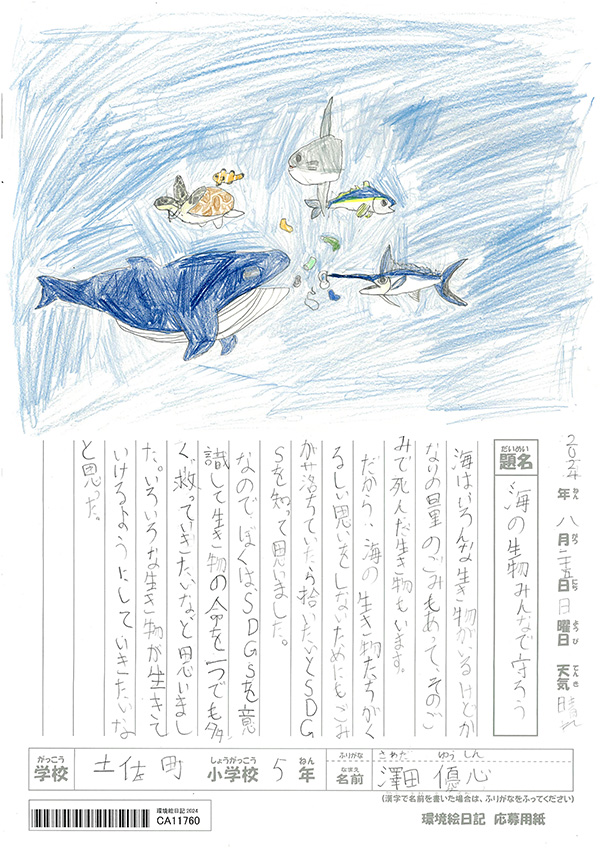 2024年八月二十五日日曜日 天気 晴れ
ねん がつ にち ようび てんき
だいめい
題名
海の生物みんなで守ろう
海はいろんな生き物がいるけどか
なりの量のごみもあって、そのご
みで死んだ生き物もいます。
だから、海の生き物たちがく
るしい思いをしないためにもごみ
が落ちていたら拾いたいとSDG
Sを知って思いました。
なのでぼくは、SDGSを意
識して生き物の命を一つでも多
く救っていきたいなと思いまし
た。いろいろな生き物が生きて
いけるようにしていきたいな
と思った。
がっこう しょうがっこう ねん
学校 土佐町 小学校 5 年
ふりがな さわだ ゆうしん
なまえ
名前 澤田 優心
(漢字で名前を書いた場合は、ふりがなをふってください)
環境絵日記 2024
CA11760
環境絵日記 応募用紙